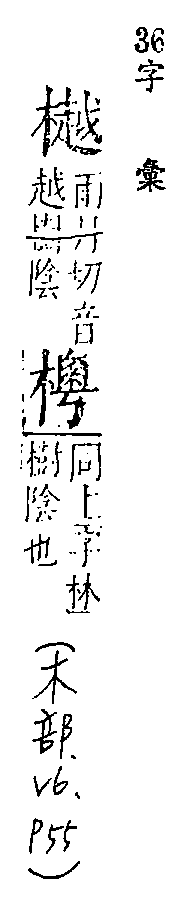 36字彙
樾
雨月切音
越樹陰
同上字林
樹陰也
(木部.V6.P55)